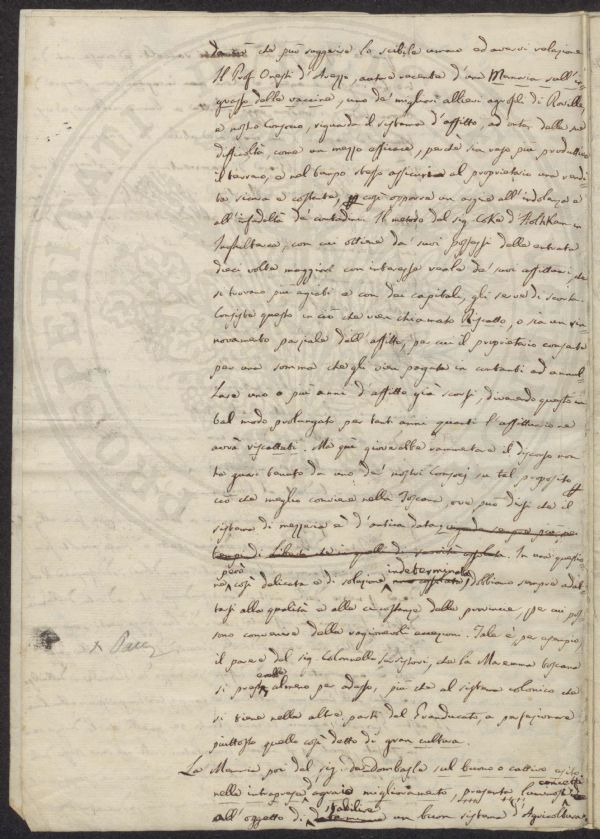 che può suggerire lo scibile umano ed avervi relazione
Il Prof. Onesti d'Arezzo, autore recente d'una Memoria sull'in-
grasso delle vaccine, uno de' migliori allievi agrofili di
e nostro Consocio, riguarda il sistema d'affitto, ad onta delle sue
difficoltà, come un mezzo efficace, perchè sia reso più produttivo
il terreno, e nel tempo stesso assicurare al proprietario una rendi-
ta sicura e costante, e così opporre un argine all'indolenza e
all'infedeltà de' contadini. Il metodo del sig. Coke d'Holkham in
Inghilterra, con cui ottiene da' suoi possessi delle entrate
dieci volte maggiori con interesse reale de' suoi affittuari, che
si trovano più agiati e con dei capitali, gli serve di scorta.
Consiste questo in ciò che vien chiamato Riscatto, o sia un rin-
novamento parziale dell'affitto, per cui il proprietario consente
per una somma che gli vien pagata in contanti ad annul-
lare uno o più anni d'affitto già scorsi, divenendo questo in
tal modo prolungato per tanti anni quanti l'affittuario ne
avrà riscattati. Ma quì gioverebbe rammentare il discorso non
ha guari tenuto da uno de' nostri Consocj su tal proposito
ciò che meglio conviene nella Toscana, ove può dirsi che il
sistema di mezzeria è d'antica data
tempi di libertà che in quelli di servitù assoluta. In una questio-
ne però così delicata e di soluzione indeterminata, dobbiamo sempre adat-
tarsi alla qualità e alle circostanze delle provincie, per cui pos-
sono convenire delle ragionevoli eccezioni. Tale è, per esempio
il parere del sig. Colonnello, che la Maremma toscana
si presterebbe almeno per adesso, più che al sistema colonico che
si tiene nelle altre parti del Granducato, a perfezionare
piuttosto quello così detto di gran cultura.
La Memoria poi del sig. de Dombasle sul buono o cattivo esito
nelle intraprese d'agrario miglioramento, presenta luminosi concetti
all'oggetto di stabilire un buon sistema d'Agricoltura